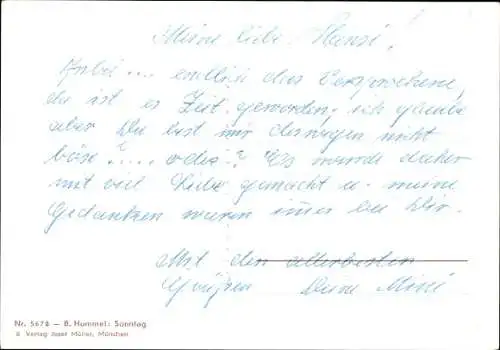 Meine liebe Hansi!
Anbei.... endlich das Versprochene,
da ist es Zeit geworden. ich glaube
aber Du bist mir deswegen nicht
böse!.... oder? Es wurde daher
mit viel Liebe gemacht u. meine
Gedanken waren immer bei Dir.
Mit den allerbesten
Grüßen Deine Mini
Nr. 5678 — B. Hummel: Sonntag
© Verlag Josef Müller, München